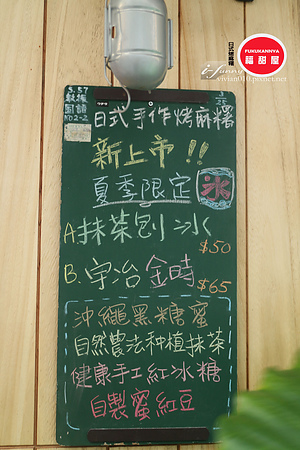 FUKURANNYA
福甜屋
日式烤麻糬
vivian010.pixnet.net
日式手作烤麻糬
新上市!!
夏季限定 冰
A.抹茶刨冰
$50
B.宇治金時
$65
沖繩黑糖蜜
自然農法种植抹茶
健康手工紅冰糖
自製蜜紅豆